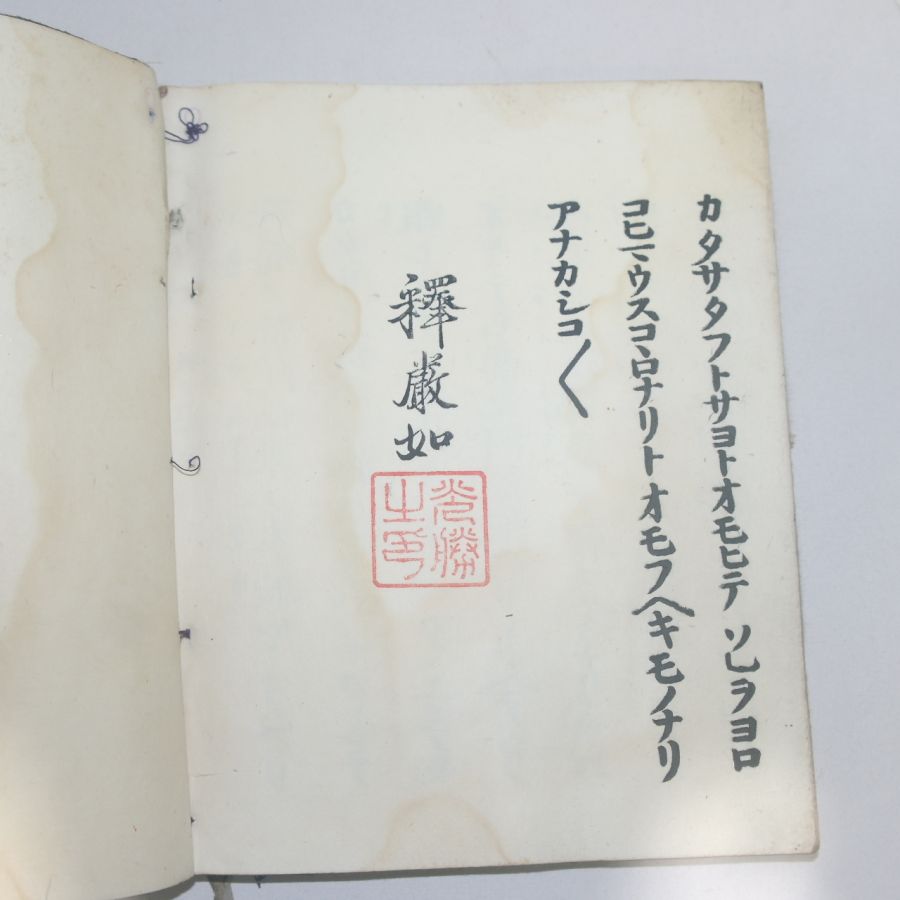 カタサタフトサヨトオモヒテソレヲヨロ
コヒマウスコヽロナリトオモフヘキモノナリ
アナカシコ〱
釋嚴如
光勝
之印